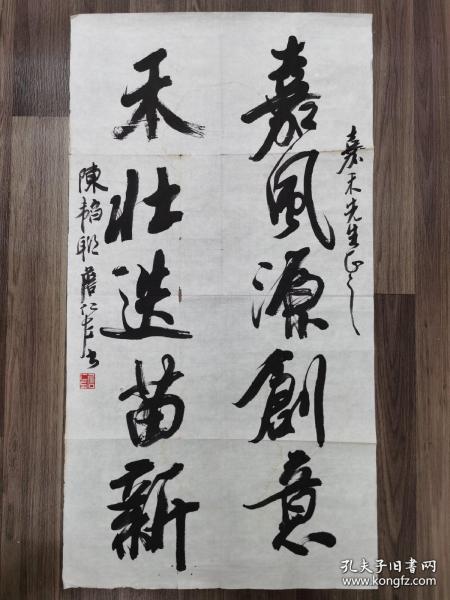 嘉禾先生正之
嘉風源創意
禾壯迭苗新
陳韜聯 唐仁書
孔夫子旧书网
www.kongfz.com